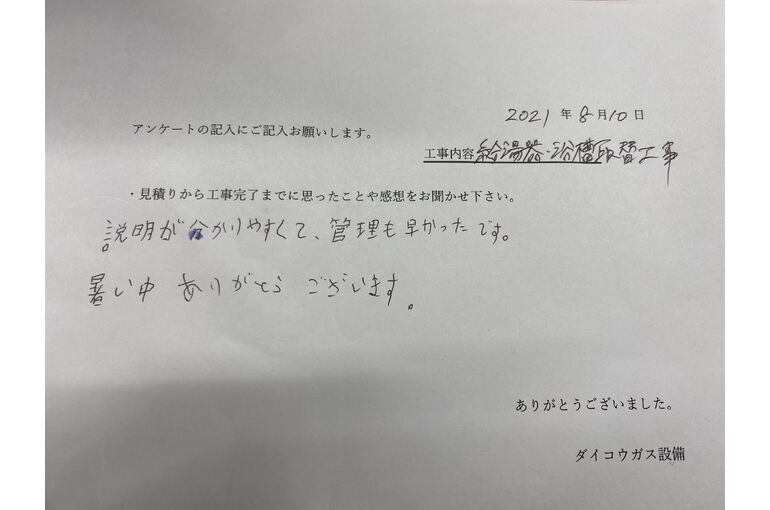 2021年8月10日
アンケートの記入にご記入お願いします。
工事内容 給湯器・浴槽取替工事
・見積りから工事完了までに思ったことや感想をお聞かせ下さい。
説明が分かりやすくて、管理も早かったです。
暑い中 ありがとう ございます。
ありがとうございました。
ダイコウガス設備